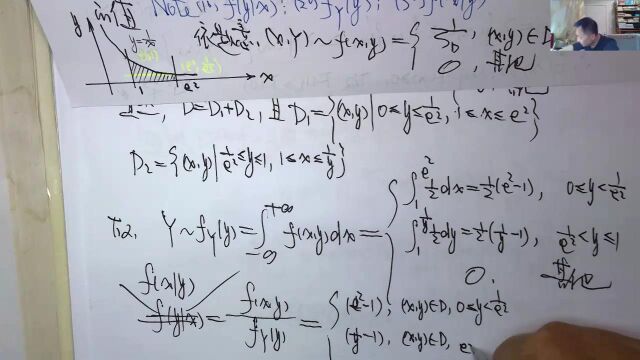 Note: (1) f(y|x); (2) f_Y(y); (3) f(x|y)
y y=1/x x 1 e²
依题意, (X,Y)~f(x,y)= { 1/S_D, (x,y)∈D
0, 其他
D=D₁+D₂, 且 D₁={(x,y)|0≤y≤1/e², 1≤x≤e²}
D₂={(x,y)|1/e²≤y≤1, 1≤x≤1/y}
Y~f_Y(y)=∫_{-∞}^{+∞} f(x,y)dx= { ∫_1^{e²} 1/2 dx=1/2(e²-1), 0≤y<1/e²
∫_1^{1/y} 1/2 dy=1/2(1/y-1), 1/e²<y≤1
0, 其他
f(x|y)
f(y|x) = f(x,y)/f_Y(y) = { (e²-1), (x,y)∈D, 0≤y<1/e²
(1/y-1), (x,y)∈D,